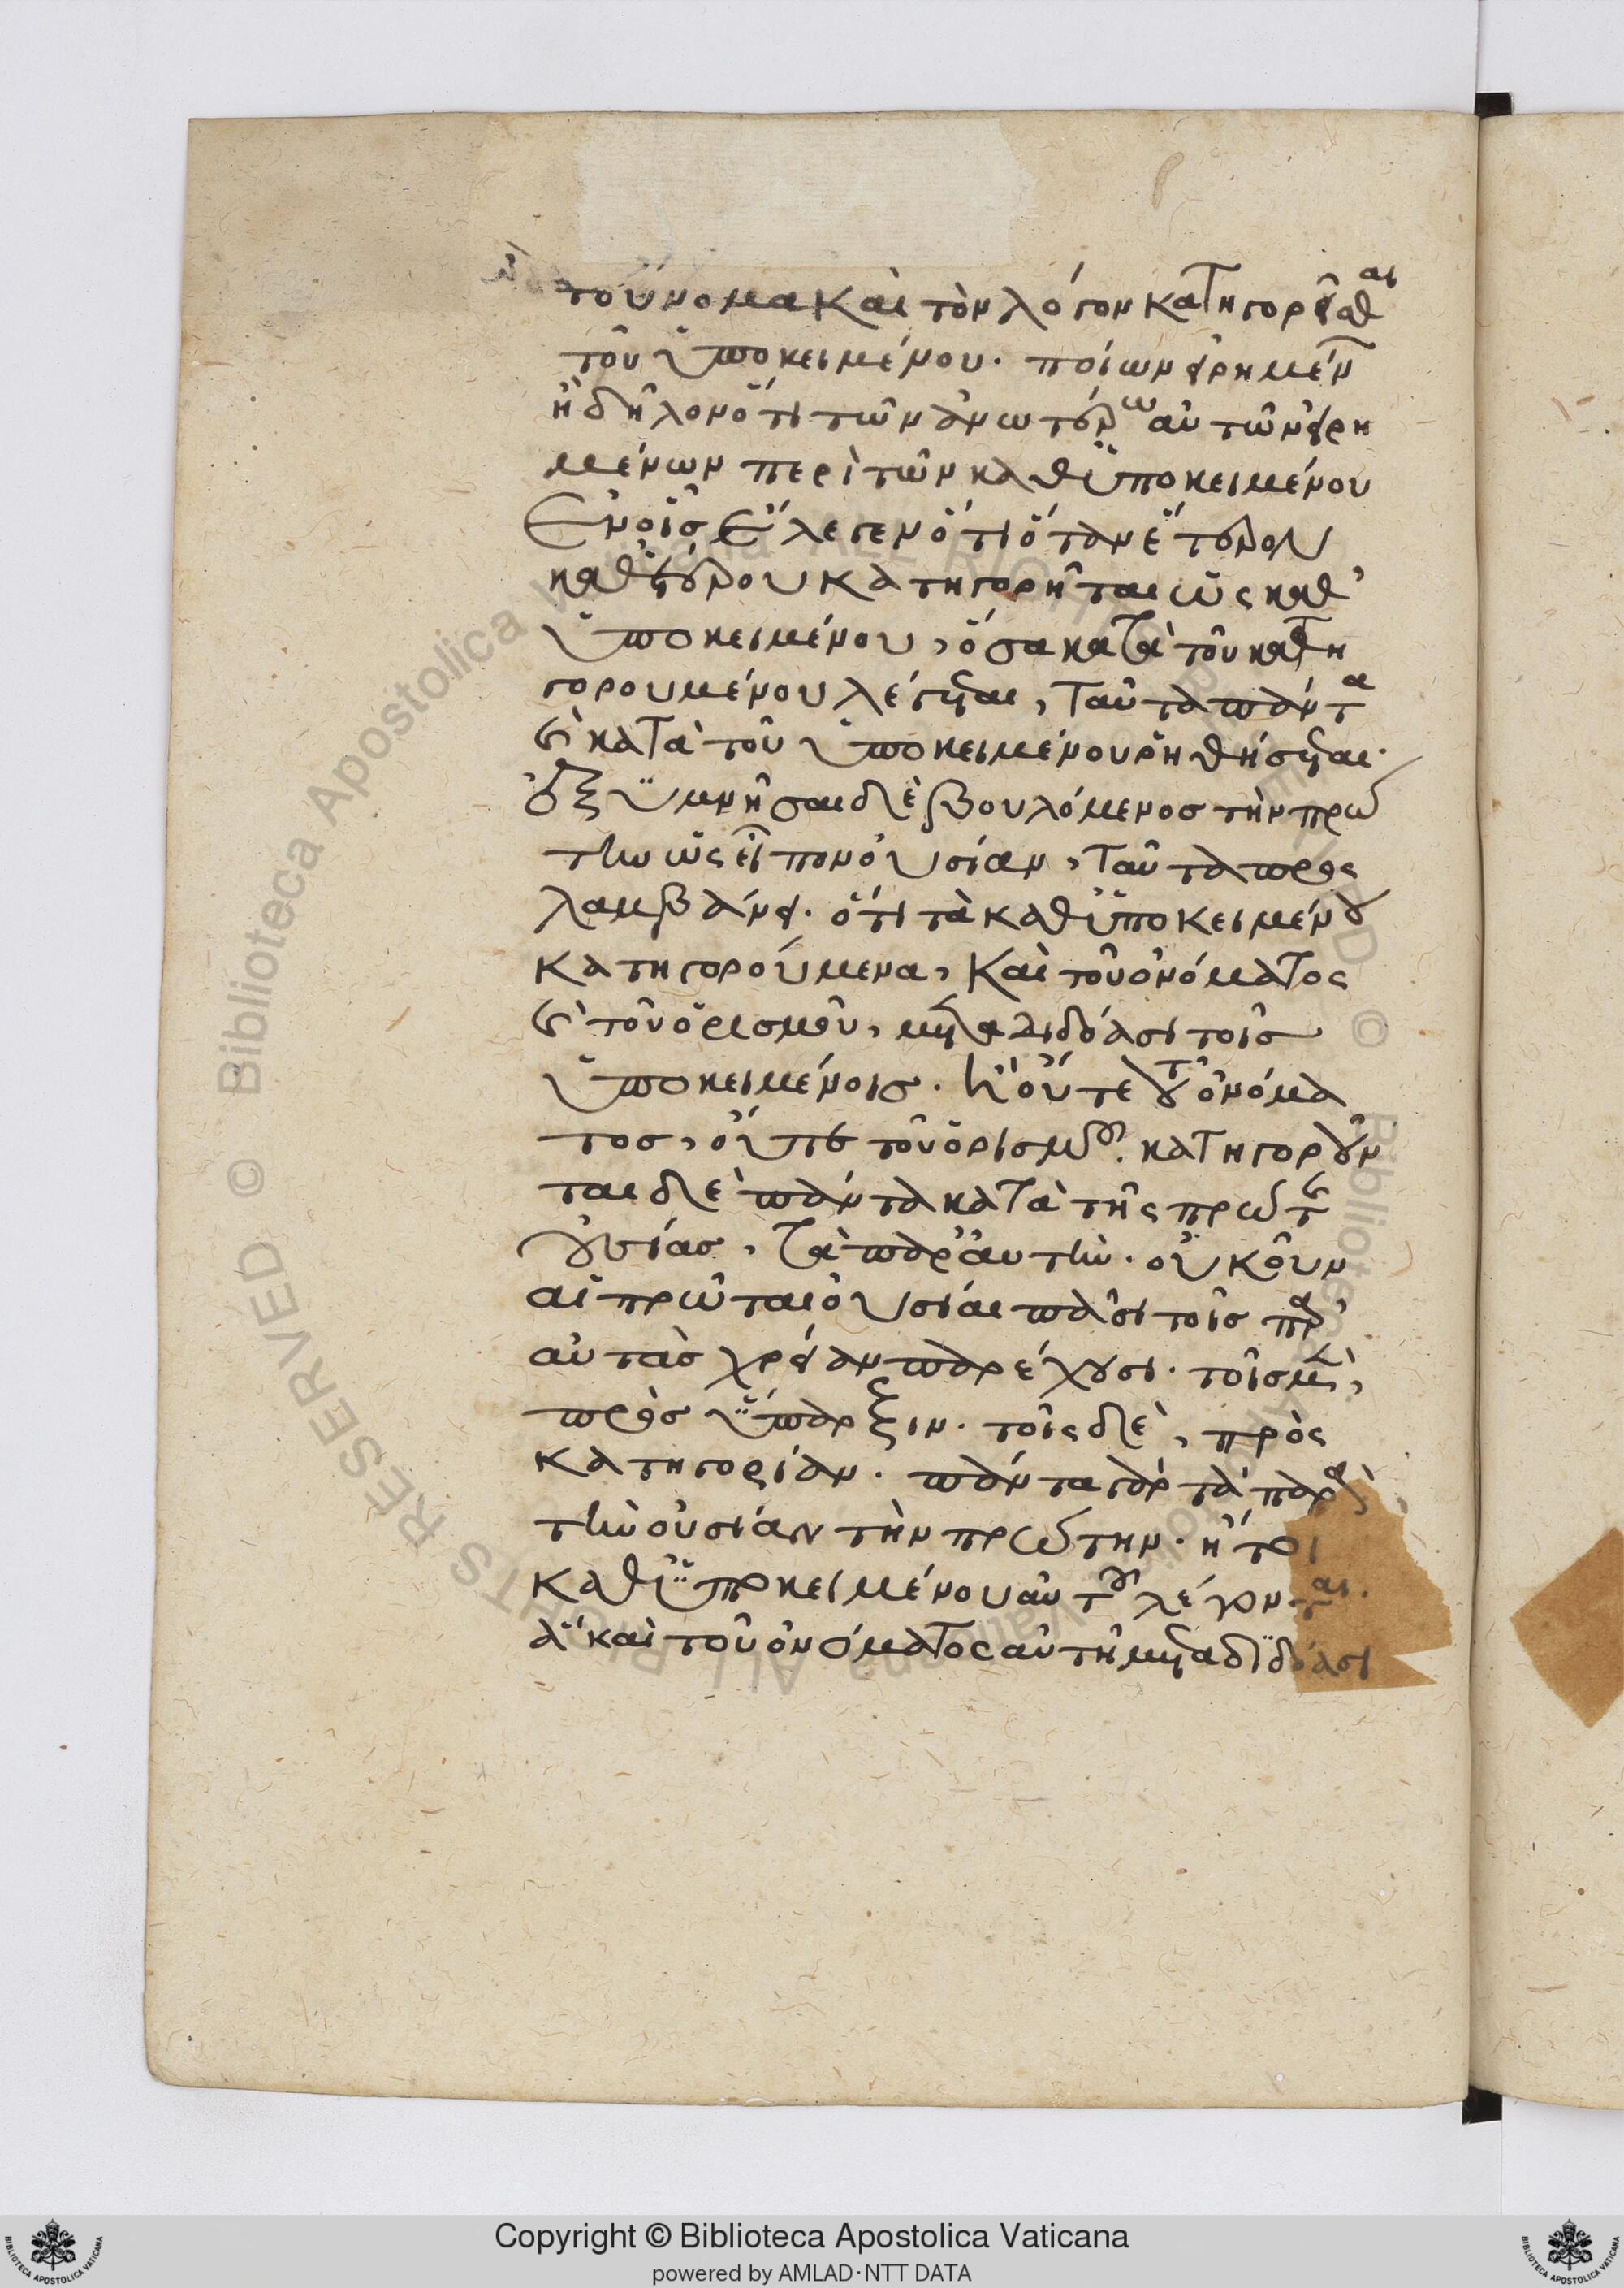 τοὔνομα καὶ τὸν λόγον κατηγορεῖσθαι
τοῦ ὑποκειμένου. ποίων εἰρημέν
ἢ δηλονότι τῶν ἀνωτέρω αὐτῶν εἰρη
μένων περὶ τῶν καθ' ὑποκειμένου
ἐν οἷς ἔλεγεν ὅτι ὅταν ἕτερον
καθ' ἑτέρου κατηγορῆται ὡς καθ'
ὑποκειμένου, ὅσα κατὰ τοῦ κατη
γορουμένου λέγεται, ταῦτα πάντα
καὶ κατὰ τοῦ ὑποκειμένου ῥηθήσεται.
ἐξυμνῆσαι δὲ βουλόμενος τὴν πρώ
την ὡς εἶπον οὐσίαν, ταῦτα προς
λαμβάνει. ὅτι τὰ καθ' ὑποκειμένου
κατηγορούμενα, καὶ τοῦ ὀνόματος
καὶ τοῦ ὁρισμοῦ, μεταδιδόασι τοῖς
ὑποκειμένοις. ἢ οὔτε τοῦ ὀνόμα
τος, οὔτε τοῦ ὁρισμοῦ. κατηγοροῦν
ται δὲ πάντα κατὰ τῆς πρώτης
οὐσίας, τὰ παρ' αὐτήν. οὐκοῦν
αἱ πρῶται οὐσίαι πᾶσι τοῖς παρ'
αὐτὰς χρείαν παρέχουσι. τοῖς μὲν,
πρὸς ὕπαρξιν. τοῖς δὲ, πρὸς
κατηγορίαν. πάντα γὰρ τὰ παρὰ
τὴν οὐσίαν τὴν πρώτην. ἤτοι
καθ' ὑποκειμένου αὐτοῦ λέγονται.
ἃ καὶ τοῦ ὀνόματος αὐτῇ μεταδιδόασι
Copyright © Biblioteca Apostolica Vaticana
powered by AMLAD·NTT DATA